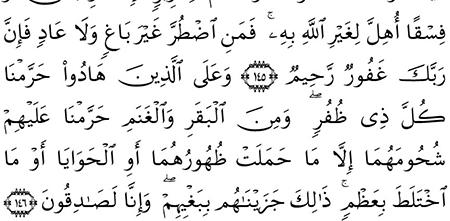 فِسْقًا أُهِلَّ لِغَيْرِ ٱللَّهِ بِهِۦۚ فَمَنِ ٱضْطُرَّ غَيْرَ بَاغٍ وَلَا عَادٍ فَإِنَّ
رَبَّكَ غَفُورٌ رَّحِيمٌ ١٤٥ وَعَلَى ٱلَّذِينَ هَادُوا۟ حَرَّمْنَا
كُلَّ ذِى ظُفُرٍۖ وَمِنَ ٱلْبَقَرِ وَٱلْغَنَمِ حَرَّمْنَا عَلَيْهِمْ
شُحُومَهُمَآ إِلَّا مَا حَمَلَتْ ظُهُورُهُمَآ أَوِ ٱلْحَوَايَآ أَوْ مَا
ٱخْتَلَطَ بِعَظْمٍۚ ذَٰلِكَ جَزَيْنَٰهُم بِبَغْيِهِمْۖ وَإِنَّا لَصَٰدِقُونَ ١٤٦